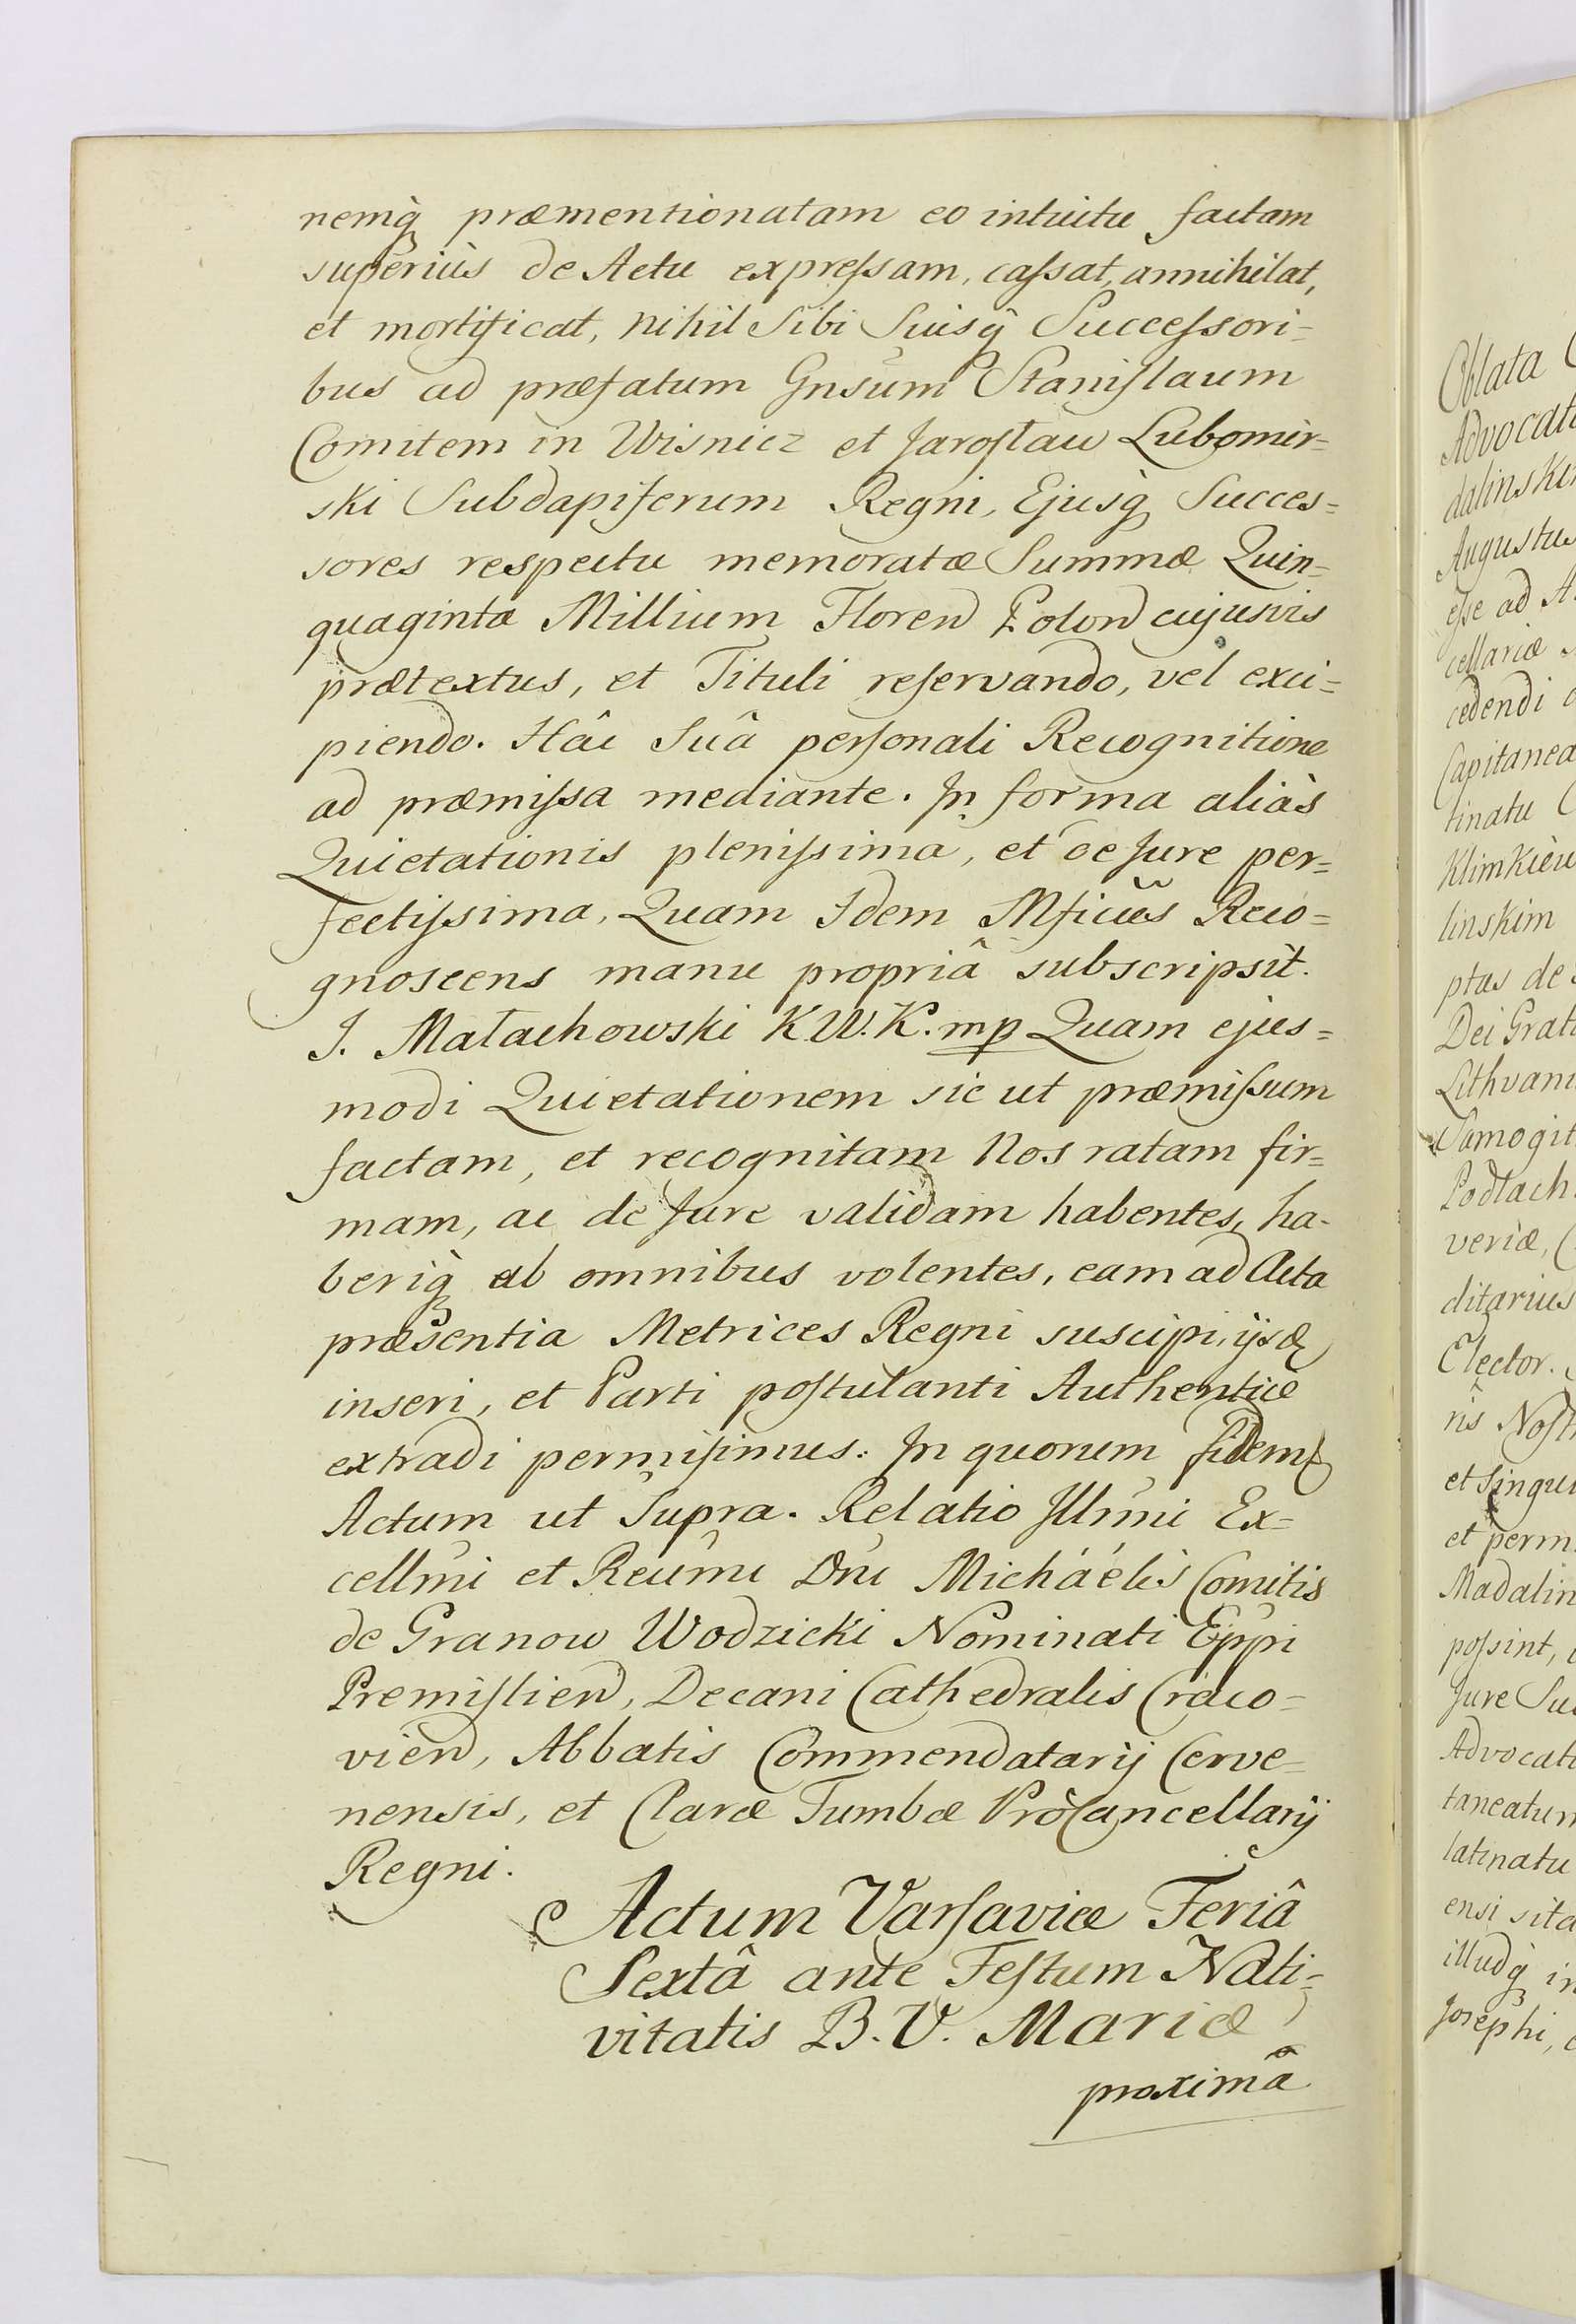 nemq̀ præmentionatam eo intuitu factam
superiùs de Actu expreſsam, caſsat, annihilat,
et mortificat, nihil Sibi Suisq̀ Succeſsori=
bus ad præfatum Gnsum Staniſlaum
Comitem in Wisnicz et Jaroſław Lubomir=
ski Subdapiferum Regni, Ejusq̀ Succes=
sores respectu memoratæ Summæ Quin=
quaginta Millium Floren Polon cujusvis
prætextus, et Tituli reſervando, vel exci=
piendo. Hâc Suâ perſonali Recognitione
ad præmiſsa mediante. In forma aliàs
Quietationis pleniſsima, et de Jure per=
fectiſsima, Quam Idem Mficus Reco=
gnoscens manu propriâ subscripsit.
J. Małachowski K W. K. mp Quam ejus=
modi Quietationem sic ut præmiſsum
factam, et recognitam Nos ratam fir=
mam, ac de Jure validam habentes, ha-
beriq̀ ab omnibus volentes, eam ad Acta
præsentia Metrices Regni suscipi, ijsq̀
inseri, et Parti poſtulanti Authentice
extradi permiſimus: In quorum fidem
Actum ut Supra. Relatio Illmi Ex=
cellmi et Reumi Dni Micháélis Comitis
de Granow Wodzicki Nominati Eppi
Premiſlien, Decani Cathedralis Craco=
vien, Abbatis Commendatarij Cerve=
nensis, et Claræ Tumbæ ProCancellarij
Regni.
Actum Varſaviæ Feriâ
Sextâ ante Feſtum Nati=
vitatis B. V. Mariæ
proximâ
Oblata
Advocat
dalinski
Augustus
eſse ad A
cellariæ
cedendi
Capitanea
tinatu
Klimkiew
linskim
ptus de
Dei Grat
Lithvan
Samogit
Podlach
veriæ,
ditarius
Elector.
ris Noſt
et Singu
et perm
Madalin
poſsint,
Jure Su
Advocat
taneatum
latinatu
ensi sita
illudq̀ in
Josephi,